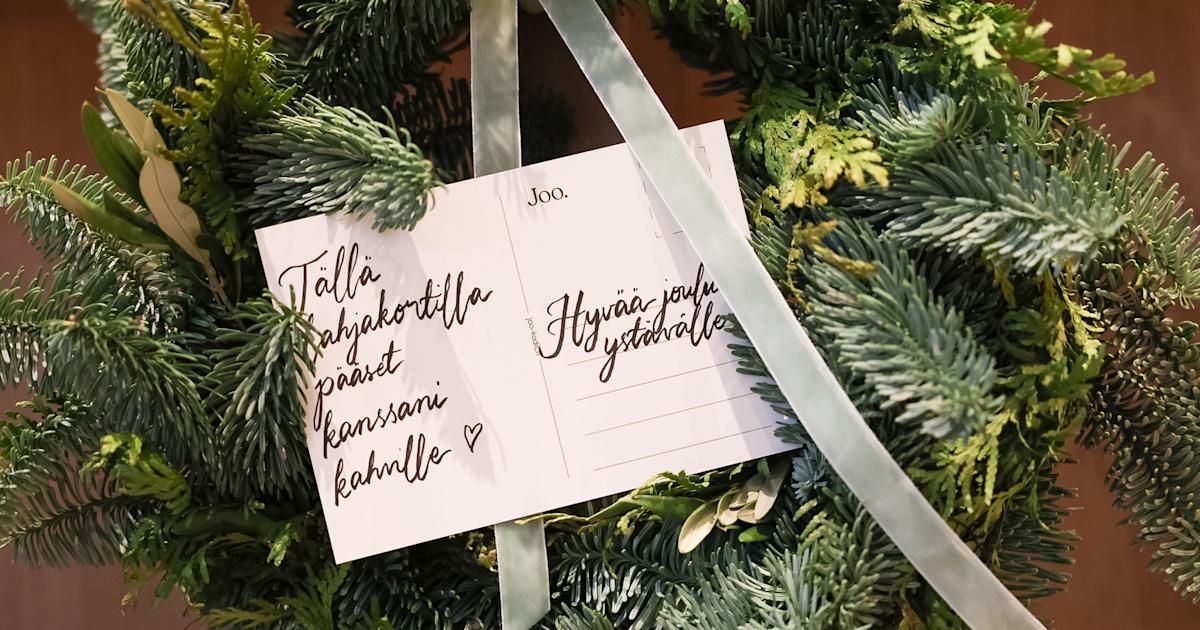 Joo.
Tällä
lahjakortilla
pääset
kanssani
kahville ♡
Hyvää joulu
ystävälle